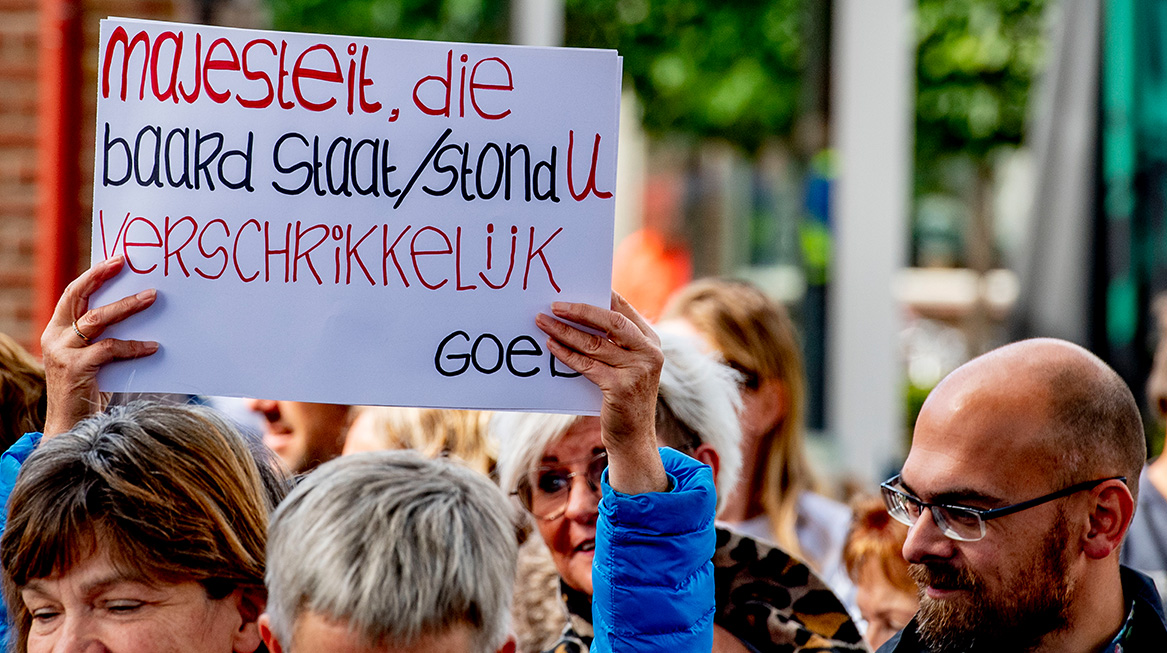 majesteit, die
baard staat/stond U
VERSCHRIKKELIJK
GOED